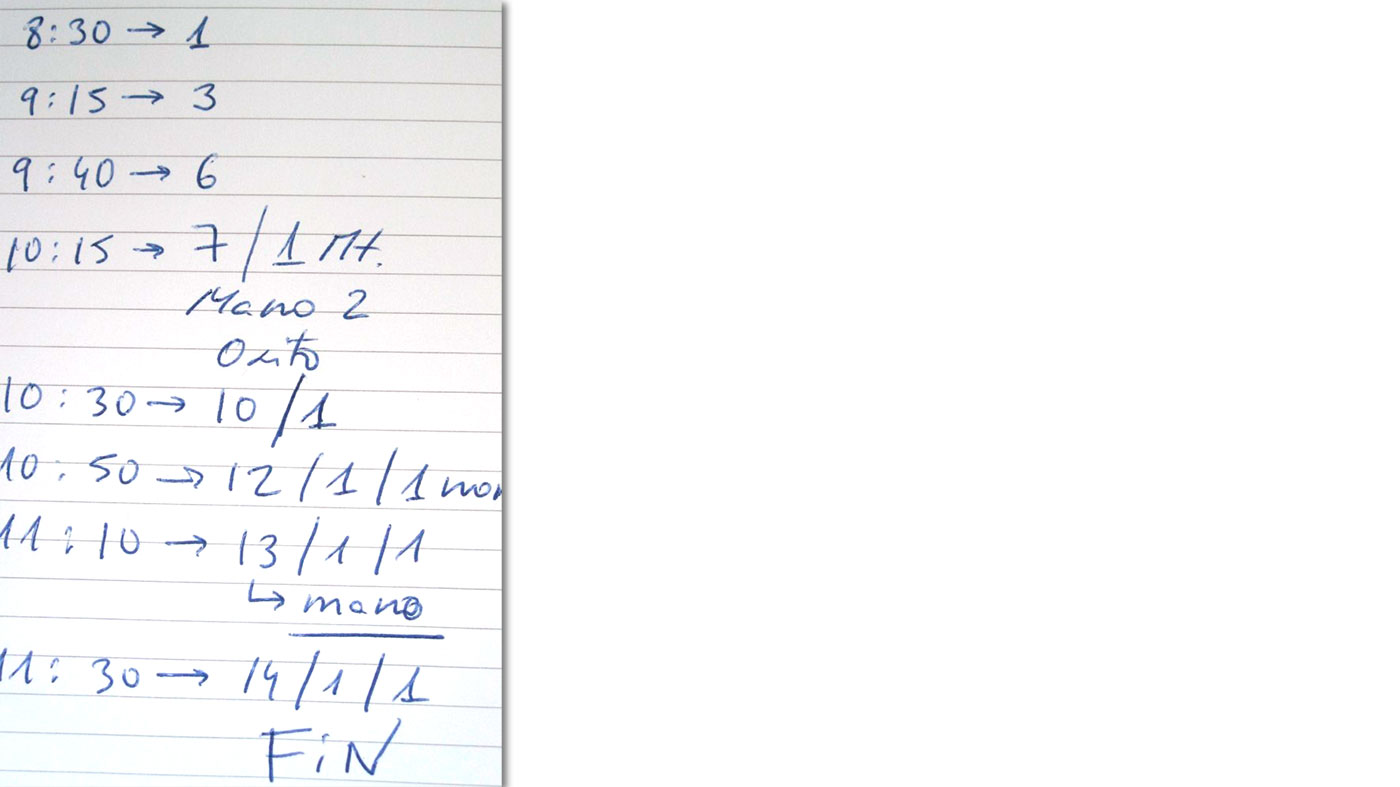 8:30 → 1
9:15 → 3
9:40 → 6
10:15 → 7/1
Mano 2
10:30 → 10/1
10:50 → 12/1/1
11:10 → 13/1/1
↳ mano
11:30 → 14/1/1
FiN